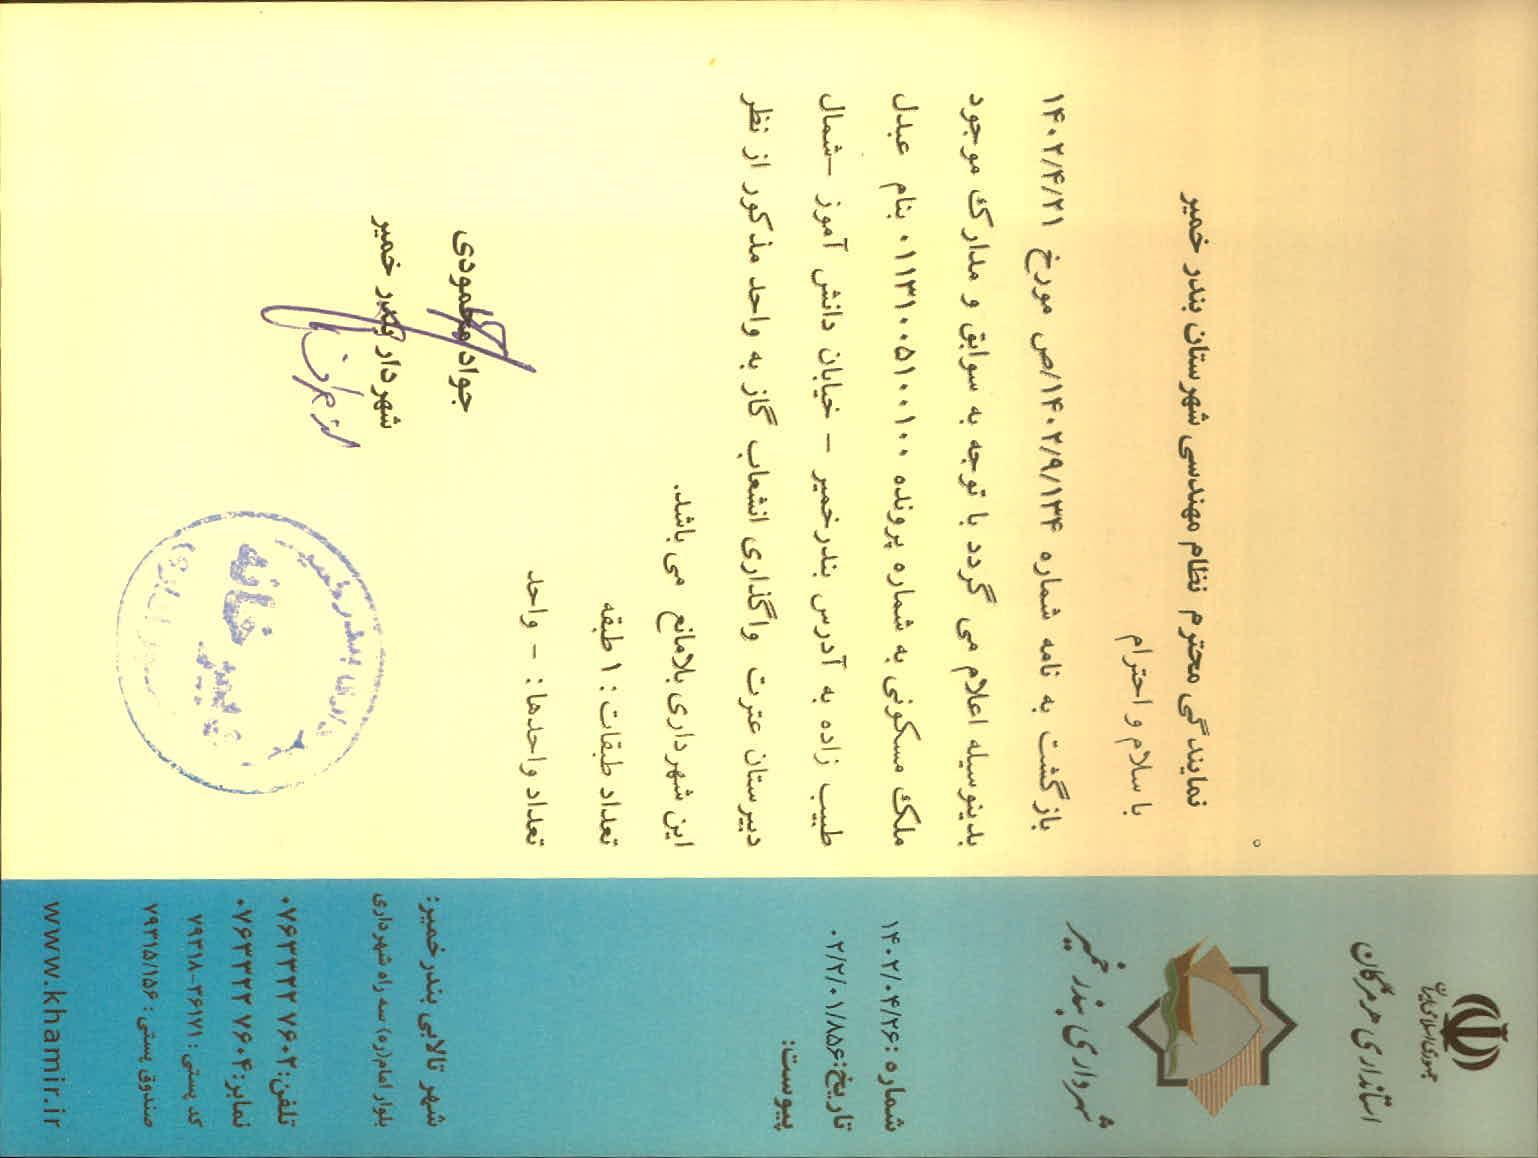 جمهوری اسلامی ایران
استانداری هرمزگان
شهرداری بندر خمیر
شماره :۱۴۰۲/۰۴/۲۶
تاریخ:۰۲/۲/۰۱/۸۵۶
پیوست:
شهر تالابی بندر خمیر:
بلوار امام(ره) سه راه شهرداری
تلفن: ۰۷۶۳۳۲۲۷۶۰۲
نمابر: ۰۷۶۳۳۲۲۷۶۰۴
کد پستی : ۳۶۱۷۱-۷۹۳۱۸
صندوق پستی : ۷۹۳۱۵/۱۵۶
www.khamir.ir
نمایندگی محترم نظام مهندسی شهرستان بندر خمیر
با سلام و احترام
بازگشت به نامه شماره ۱۴۰۲/۹/۱۳۴/ص مورخ ۱۴۰۲/۴/۲۱
بدینوسیله اعلام می گردد با توجه به سوابق و مدارک موجود
ملک مسکونی به شماره پرونده ۰۱۱۳۱۰۰۵۱۰۰۱۰۰ بنام عبدل
طبیب زاده به آدرس بندرخمیر - خیابان دانش آموز -شمال
دبیرستان عترت واگذاری انشعاب گاز به واحد مذکور از نظر
این شهرداری بلامانع می باشد.
تعداد طبقات : ۱ طبقه
تعداد واحدها : - واحد
جواد محمودی
شهردار بندر خمیر